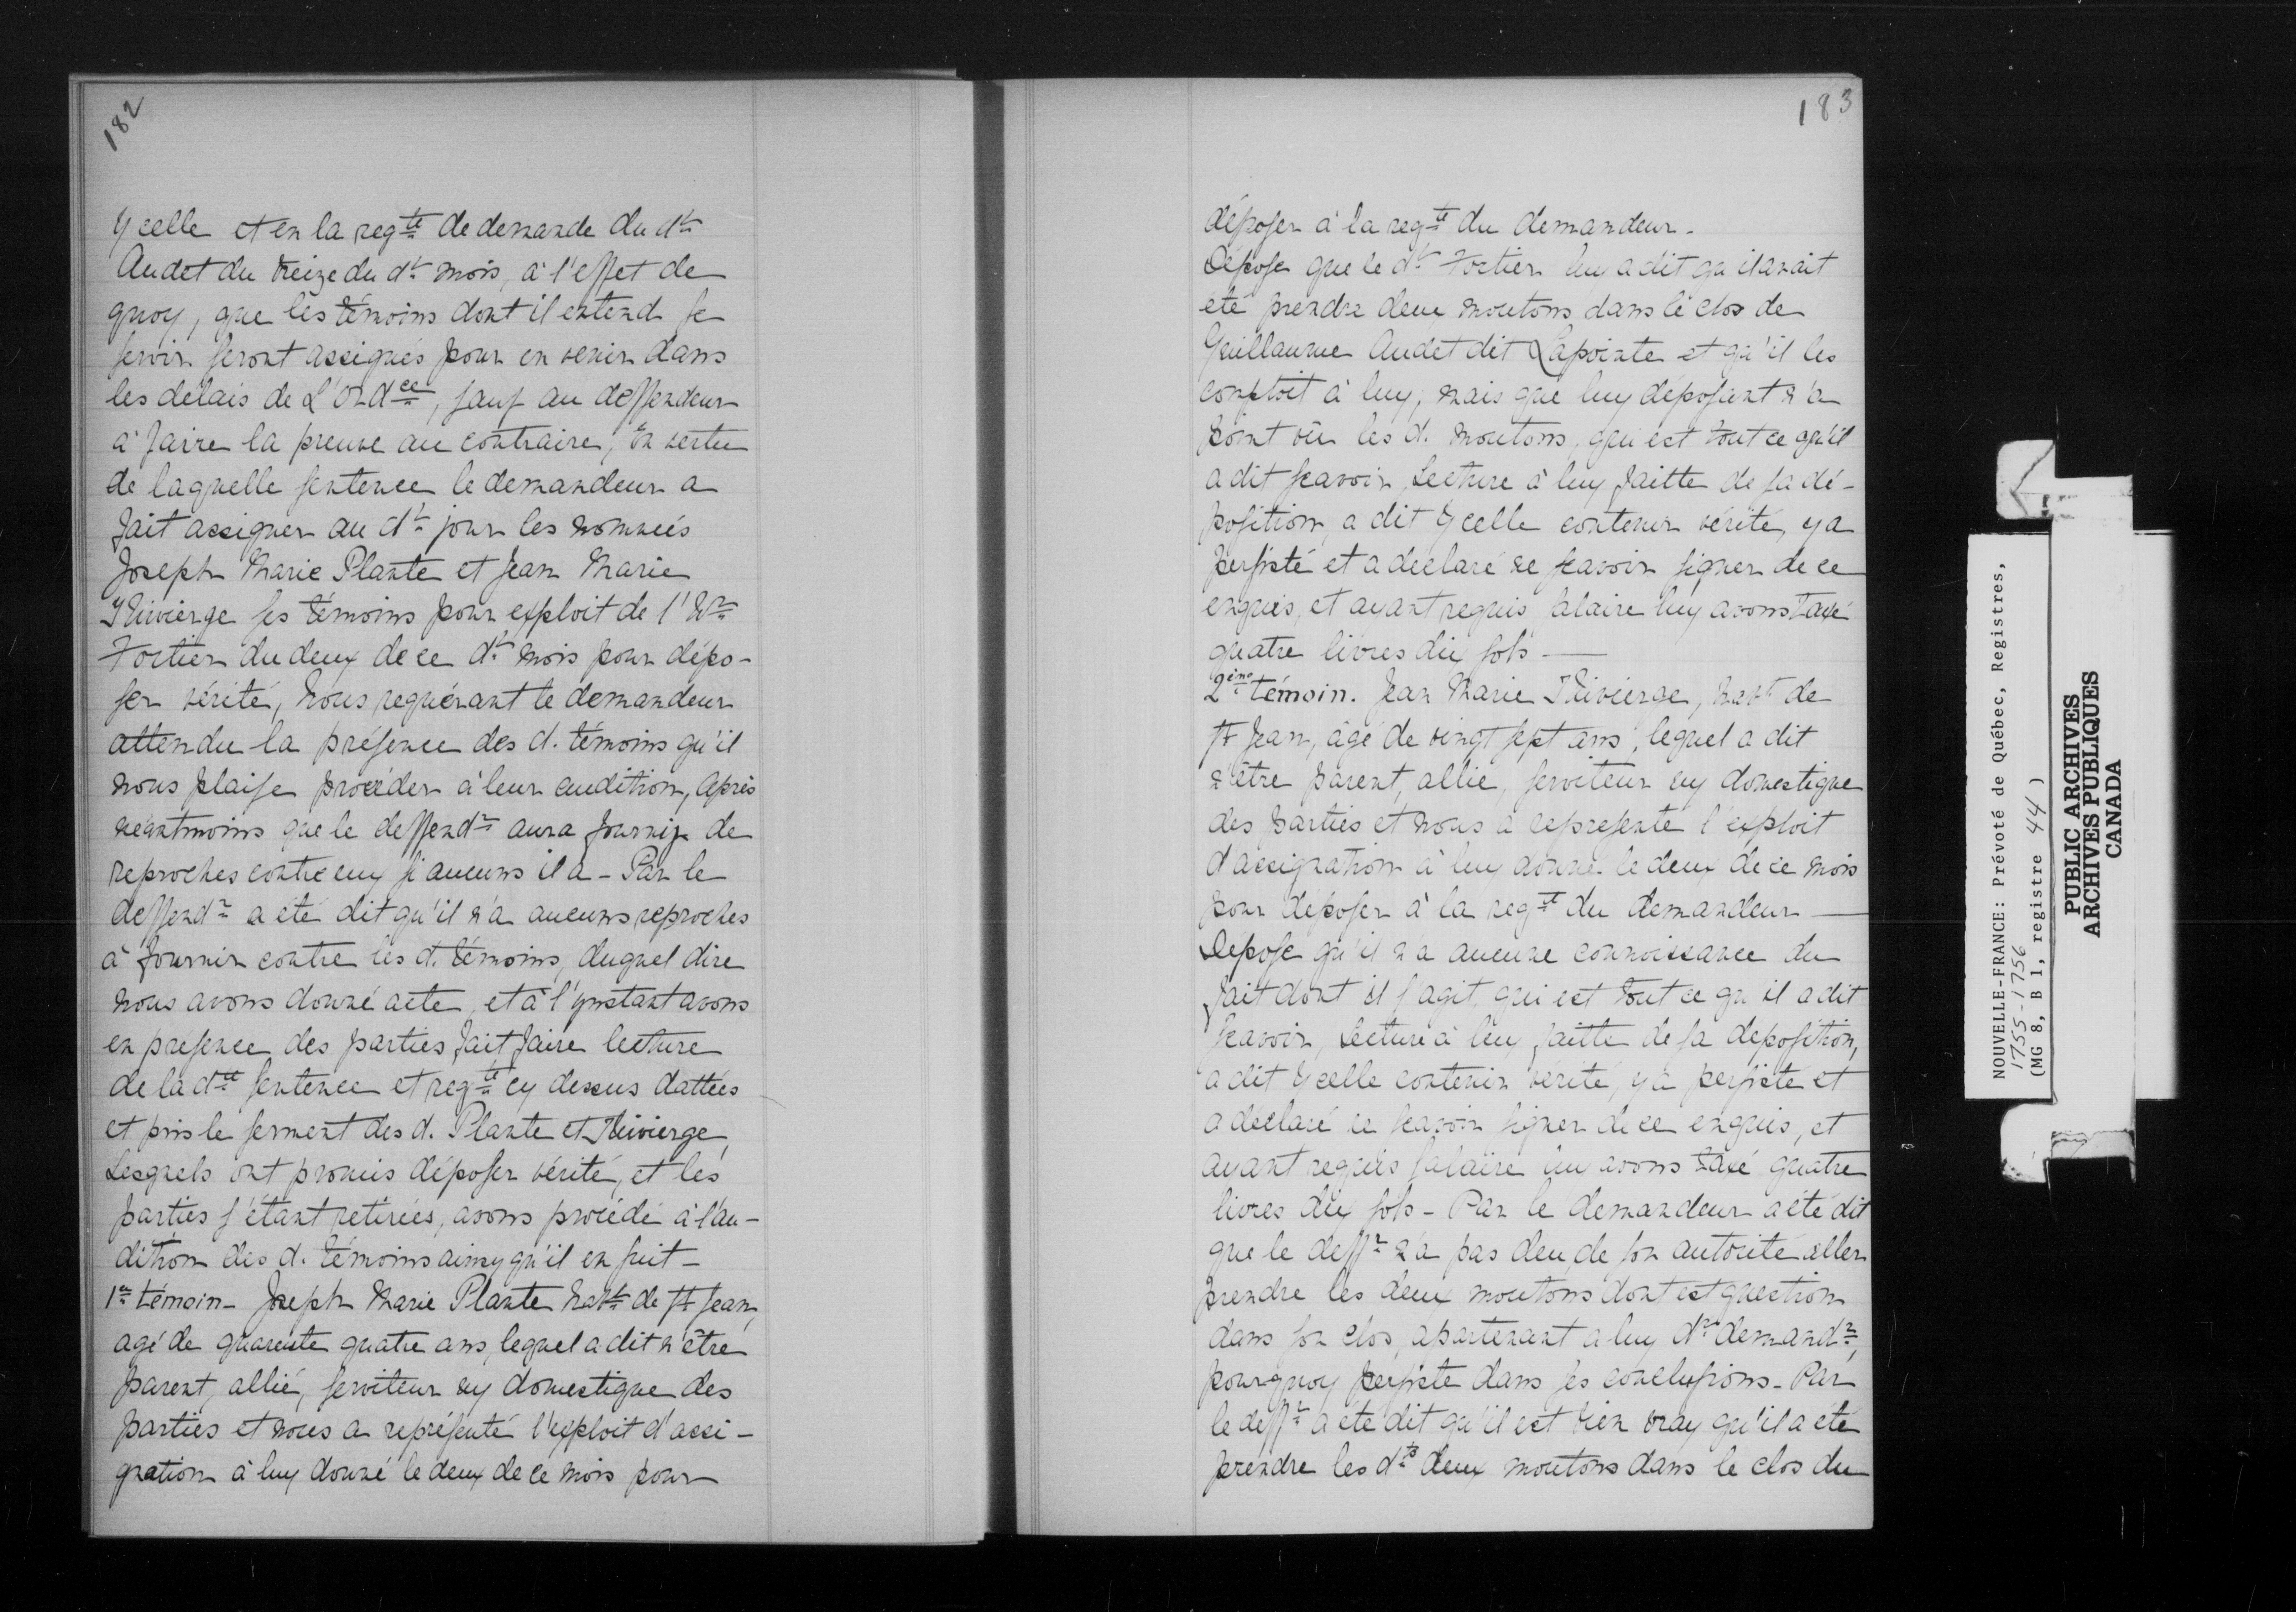 182
Ycelle et en la reqte de demande du dt
Audet du treize du dt mois, à l'effet de
quoy, que les témoins dont il entend se
servir seront assignés pour en venir dans
les délais de L'Ordce, sauf au deffendeur
à faire la preuve au contraire, En vertu
de laquelle sentence le demandeur a
fait assigner au dt jour les nommés
Joseph Marie Plante et Jean Marie
Thivierge ses témoins pour exploit de l'hr
Fortier du deux de ce dt mois pour dépo-
ser vérité, Nous requérant le demandeur
attendu la présence des d. témoins qu'il
nous plaise procéder à leur audition, après
néantmoins que le deffendr aura fourny de
reproches contre eux si aucuns il a - Par le
deffendr a été dit qu'il n'a aucuns reproches
à fournir contre les d. témoins, duquel dire
nous avons donné acte, et à l'ynstant avons
en presence des parties, fait faire lecture
de la dte sentence et reqte cy dessus dattées
et pris le serment des d. Plante et Thivierge,
Lesquels ont promis déposer vérité, et les
parties s'étant retirées, avons procédé à l'au-
dition des d. témoins ainsy qu'il en suit -
1er témoin - Joseph Marie Plante habt de St Jean,
agé de quarente quatre ans, lequel a dit n'être
parent, allié, serviteur ny domestique des
parties et nous a représenté l'exploit d'assi-
gnation à luy donné le deux de ce mois pour
183
déposer à la reqte du demandeur.
Dépose que le dt Fortier luy a dit qu'il avait
été prendre deux moutons dans le clos de
Guillaume Audet dit Lapointe et qu'il les
comptoit à luy, mais que luy déposant n'a
point vû les d. moutons, qui est tout ce qu'il
a dit scavoir, Lecture à luy faitte de sa dé-
position, a dit Ycelle contenir vérité, y a
persisté et a déclaré ne scavoir signer de ce
enquis, et ayant requis salaire luy avons taxé
quatre livres dix sols —
2ème témoin. Jean Marie Thivierge, habt de
St Jean, âgé de vingt sept ans, lequel a dit
n'être parent, allié, serviteur ny domestique
des parties et nous a representé l'exploit
d'assignation à luy donné le deux de ce mois
pour déposer à la reqte du demandeur —
Dépose qu'il n'a aucune connoissance du
fait dont il s'agit, qui est tout ce qu'il a dit
scavoir, Lecture à luy faitte de sa deposition,
a dit Ycelle contenir vérité, y a persisté et
a déclaré ne scavoir signer de ce enquis, et
ayant requis salaire luy avons taxé quatre
livres dix sols - Par le demandeur a été dit
que le deffr n'a pas deu, de son autorité aller
prendre les deux moutons dont est question
dans son clos, apartenant a luy dt demandr,
pourquoy persiste dans ses conclusions - Par
le deffr a été dit qu'il est bien vray qu'il a été
prendre les dts deux moutons dans le clos du
NOUVELLE-FRANCE: Prévoté de Québec, Registres,
1755-1756
(MG 8, B 1, registre 44)
PUBLIC ARCHIVES
ARCHIVES PUBLIQUES
CANADA